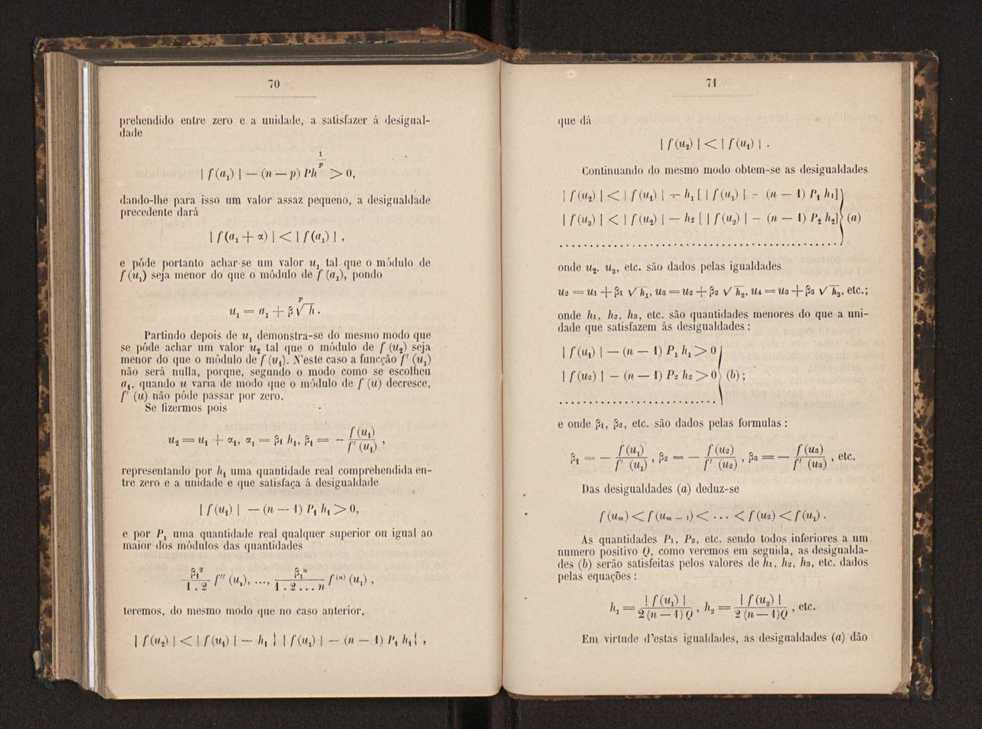 70
prehendido entre zero e a unidade, a satisfazer á desigual-
dade
| f(a₁) | — (n — p) Ph^(1/p) > 0,
dando-lhe para isso um valor assaz pequeno, a desigualdade
precedente dará
| f(a₁ + α) | < | f(a₁) | ,
e póde portanto achar-se um valor u₁ tal que o módulo de
f(u₁) seja menor do que o módulo de f(a₁), pondo
u₁ = a₁ + β ᵖ√h .
Partindo depois de u₁ demonstra-se do mesmo modo que
se póde achar um valor u₂ tal que o módulo de f(u₂) seja
menor do que o módulo de f(u₁). N'este caso a funcção f′(u₁)
não será nulla, porque, segundo o modo como se escolheu
a₁, quando u varia de modo que o módulo de f(u) decresce,
f′(u) não póde passar por zero.
Se fizermos pois
u₂ = u₁ + α₁, α₁ = β₁ h₁, β₁ = — f(u₁) / f′(u₁) ,
representando por h₁ uma quantidade real comprehendida en-
tre zero e a unidade e que satisfaça á desigualdade
| f(u₁) | — (n — 1) P₁ h₁ > 0,
e por P₁ uma quantidade real qualquer superior ou igual ao
maior dos módulos das quantidades
β₁² / 1 . 2 f″(u₁), ..., β₁ⁿ / 1 . 2 ... n f⁽ⁿ⁾(u₁) ,
teremos, do mesmo modo que no caso anterior,
| f(u₂) | < | f(u₁) | — h₁ { | f(u₁) | — (n — 1) P₁ h₁ { ,
71
que dá
| f(u₂) | < | f(u₁) | .
Continuando do mesmo modo obtem-se as desigualdades
| f(u₂) | < | f(u₁) | — h₁ [ | f(u₁) | — (n — 1) P₁ h₁]
| f(u₃) | < | f(u₂) | — h₂ [ | f(u₂) | — (n — 1) P₂ h₂] (a)
........................................
onde u₂, u₃, etc. são dados pelas igualdades
u₂ = u₁ + β₁ √h₁, u₃ = u₂ + β₂ √h₂, u₄ = u₃ + β₃ √h₃, etc.;
onde h₁, h₂, h₃, etc. são quantidades menores do que a uni-
dade que satisfazem ás desigualdades :
| f(u₁) | — (n — 1) P₁ h₁ > 0
| f(u₂) | — (n — 1) P₂ h₂ > 0 (b) ;
........................
e onde β₁, β₂, etc. são dados pelas formulas :
β₁ = — f(u₁) / f′(u₁) , β₂ = — f(u₂) / f′(u₂) , β₃ = — f(u₃) / f′(u₃) , etc.
Das desigualdades (a) deduz-se
f(uₘ) < f(uₘ₋₁) < . . . < f(u₂) < f(u₁) .
As quantidades P₁, P₂, etc. sendo todos inferiores a um
numero positivo Q, como veremos em seguida, as desigualda-
des (b) serão satisfeitas pelos valores de h₁, h₂, h₃, etc. dados
pelas equações :
h₁ = | f(u₁) | / 2 (n — 1) Q , h₂ = | f(u₂) | / 2 (n — 1) Q , etc.
Em virtude d'estas igualdades, as desigualdades (a) dão